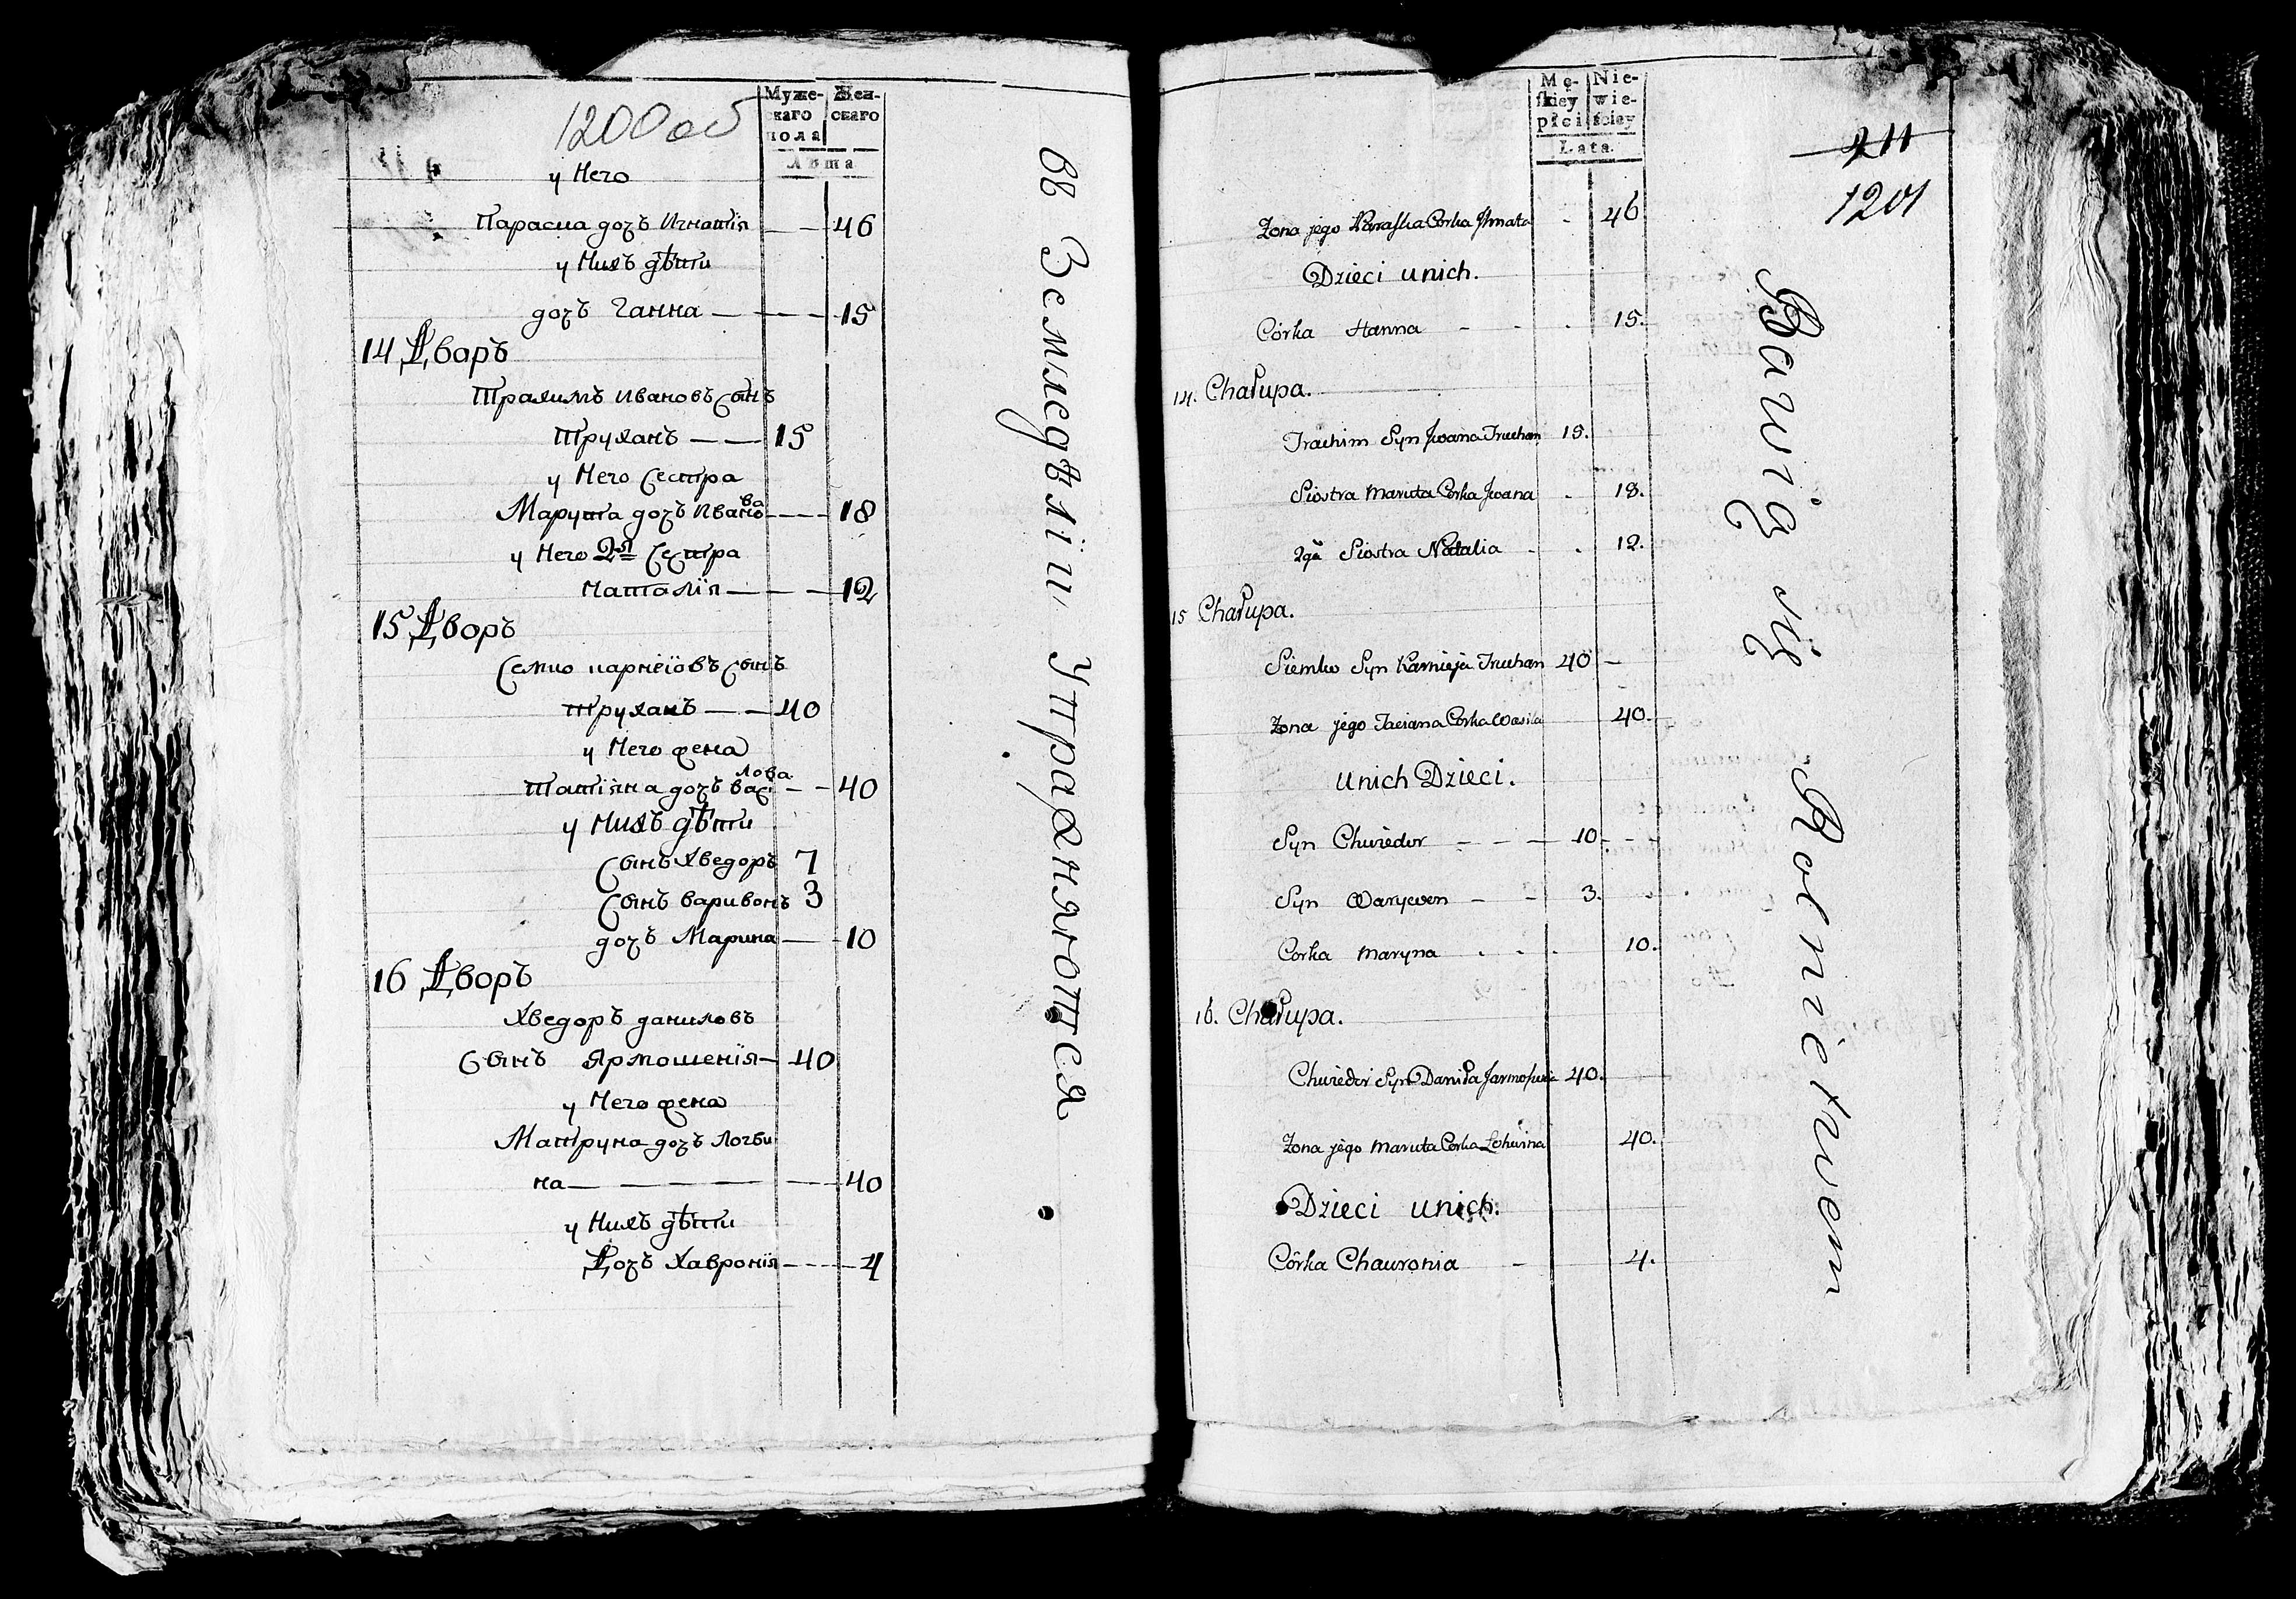 1200 об
Муже-
скаго
пола
Жен-
скаго
Лѣта
у Него
Параска дочъ Игнатія — — 46
у Нихъ дѣти
дочъ Ганна — — — 15
14 Дворъ
Трахимъ Ивановъ Сынъ
Труханъ — — 15
у Него Сестра
Марута дочъ Иванова — — — 18
у Него 2я Сестра
Наталія — — — 12
15 Дворъ
Семко карнѣіовъ Сынъ
труханъ — — 40
у Него жена
Татіяна дочъ Васілова — — 40
у Нихъ дѣти
Сынъ Хведоръ 7
Сынъ варивонъ 3
дочъ Марина — — 10
16 Дворъ
Хведоръ даниловъ
Сынъ Ярмошенія — 40
у Него жена
Матруна дочъ Логви
на — — — — — — 40
у Нихъ дѣти
Дочъ Хавронія — — — 4
въ Земледѣліи Упражняются
Mę-
skiey
płci
Nie-
wie-
ściey
Lata.
211
1201
Żona jego Paraska Corka Ihnata - 46
Dzieci unich.
Córka Hanna - - . 15.
14. Chałupa.
Trachim Syn Jwana Truchan 15.
Siostra Maruta Corka Jwana . 18.
2ga Siostra Natalia - . 12.
15 Chałupa.
Siemko Syn Karnieja Truchan 40 —
Żona jego Taciana Corka Wasila 40.
unich Dzieci.
Syn Chwiedor - - - 10. - -
Syn Warywon - - 3.
Corka Maryna . . . 10.
16. Chałupa.
Chwiedor Syn Daniła Jarmoszenia 40.
Żona jego Maruta Corka Łohwina 40.
Dzieci unich.
Córka Chawronia - 4.
Bawią się Rolnictwem